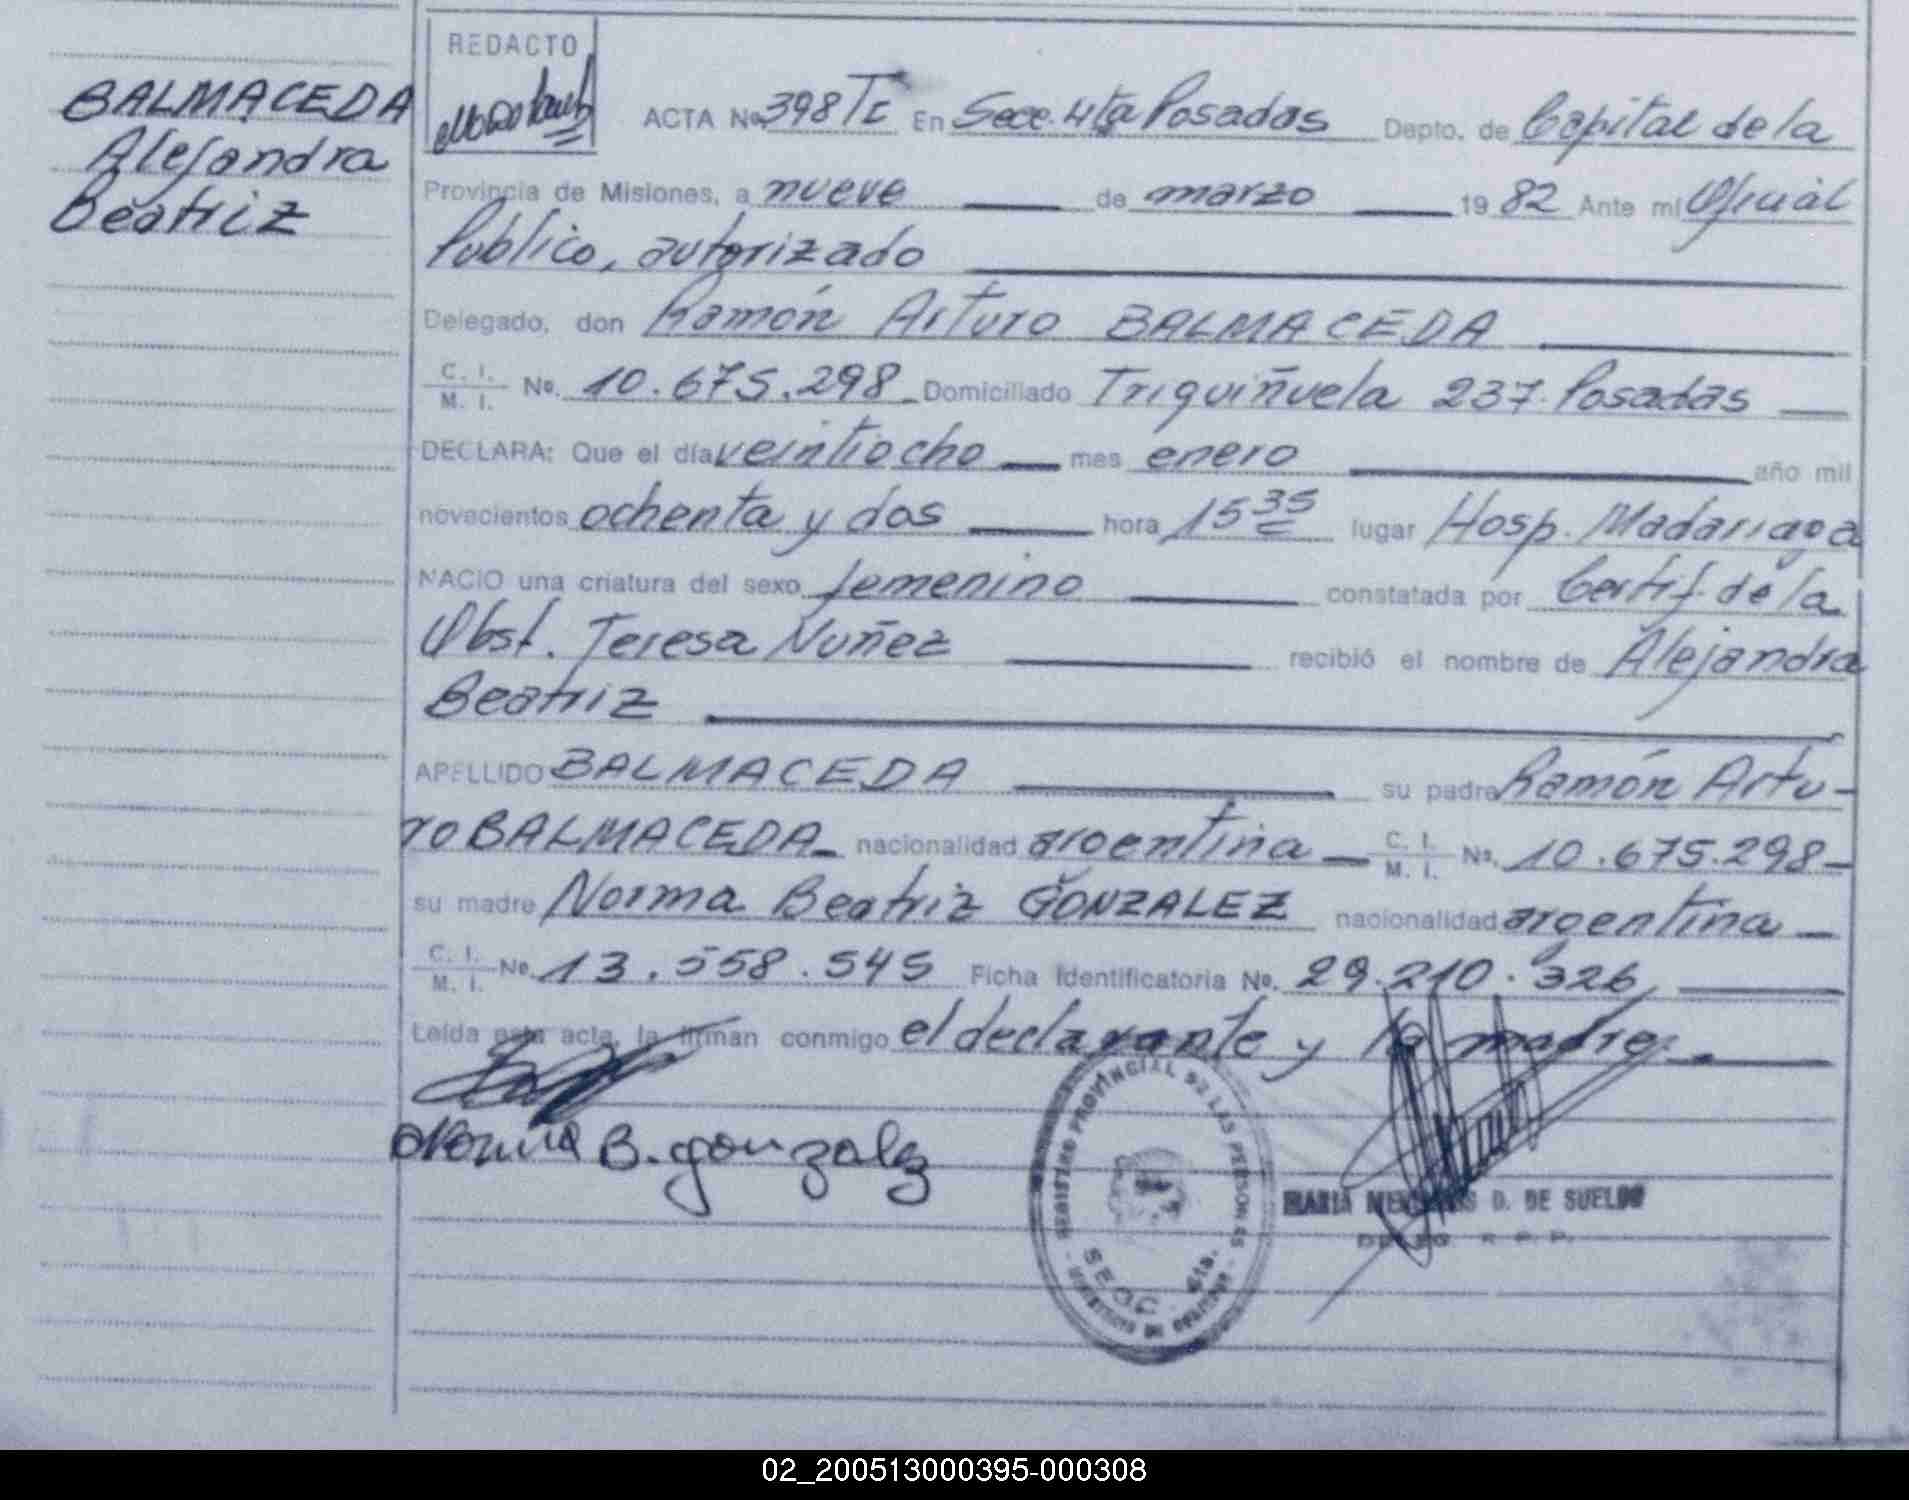 BALMACEDA
Alejandra
Beatriz
REDACTO
ACTA No. 398 Tc En Secc. 4ta Posadas Depto. de Capital de la
Provincia de Misiones, a nueve de marzo 1982 Ante mi Oficial
Publico, autorizado
Delegado, don Ramón Arturo BALMACEDA
C. I. M. I. No. 10.675.298 Domiciliado Triquiñuela 237. Posadas
DECLARA: Que el día veintiocho mes enero año mil
novecientos ochenta y dos hora 15 35 lugar Hosp. Madariaga
NACIO una criatura del sexo femenino constatada por Certif. de la
Obst. Teresa Nuñez recibió el nombre de Alejandra
Beatriz
APELLIDO BALMACEDA su padre Ramón Artu-
ro BALMACEDA nacionalidad argentina C. I. M. I. No. 10.675.298
su madre Norma Beatriz GONZALEZ nacionalidad argentina
C. I. M. I. No. 13.558.545 Ficha Identificatoria No. 29.210.326
Leída esta acta, la firman conmigo el declarante y la madre.
Norma B. gonzalez
REGISTRO PROVINCIAL DE LAS PERSONAS
SECC. 4ta.
MARIA D. DE SUELDO
DELEG. R. P. P.
02_200513000395-000308